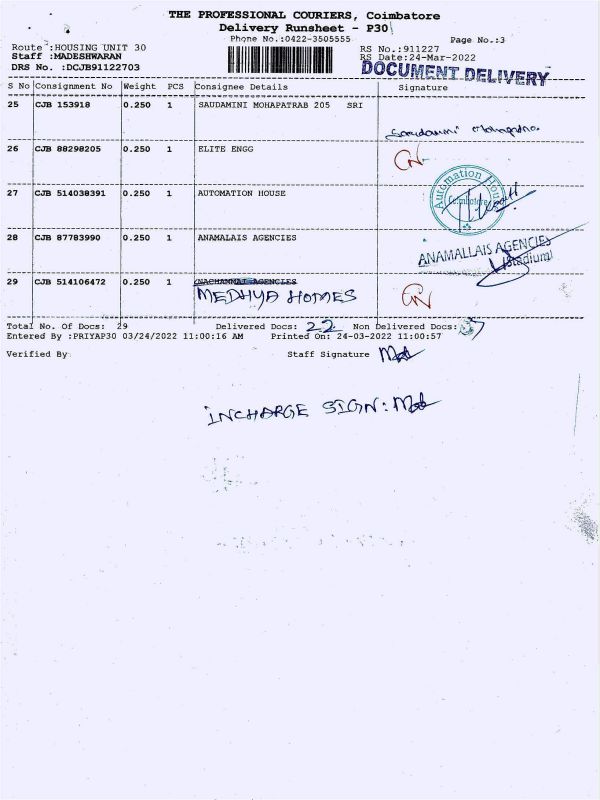 THE PROFESSIONAL COURIERS, Coimbatore
Delivery Runsheet - P30
Phone No.:0422-3505555
Page No.:3
Route :HOUSING UNIT 30
RS No.:911227
Staff :MADESHWARAN
RS Date:24-Mar-2022
DRS No. :DCJB91122703
DOCUMENT DELIVERY
S No Consignment No Weight PCS Consignee Details Signature
25 CJB 153918 0.250 1 SAUDAMINI MOHAPATRAB 205 SRI
26 CJB 88298205 0.250 1 ELITE ENGG
27 CJB 514038391 0.250 1 AUTOMATION HOUSE
Automation House
Coimbatore
28 CJB 87783990 0.250 1 ANAMALAIS AGENCIES
ANAMALLAIS AGENCIES
(Stadium)
29 CJB 514106472 0.250 1 NACHAMMAI AGENCIES
MEDHYA HOMES
Total No. Of Docs: 29 Delivered Docs: 22 Non Delivered Docs:
Entered By :PRIYAP30 03/24/2022 11:00:16 AM Printed On: 24-03-2022 11:00:57
Verified By Staff Signature
INCHARGE SIGN: